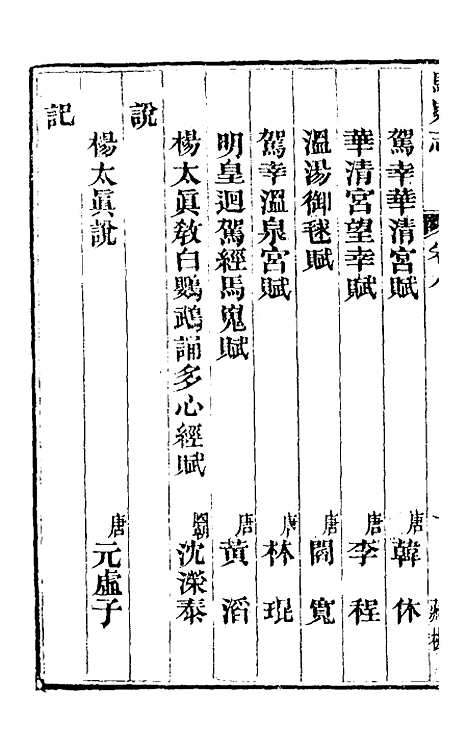 駕幸華清宮賦 唐 韓休
華清宮望幸賦 唐 李程
溫湯御毬賦 唐 閻寬
駕幸溫泉宮賦 唐 林琨
明皇迴駕經馬嵬賦 唐 黃滔
楊太眞敎白鸚鵡誦多心經賦 沈濚泰
說
楊太眞說 唐 元虛子
記